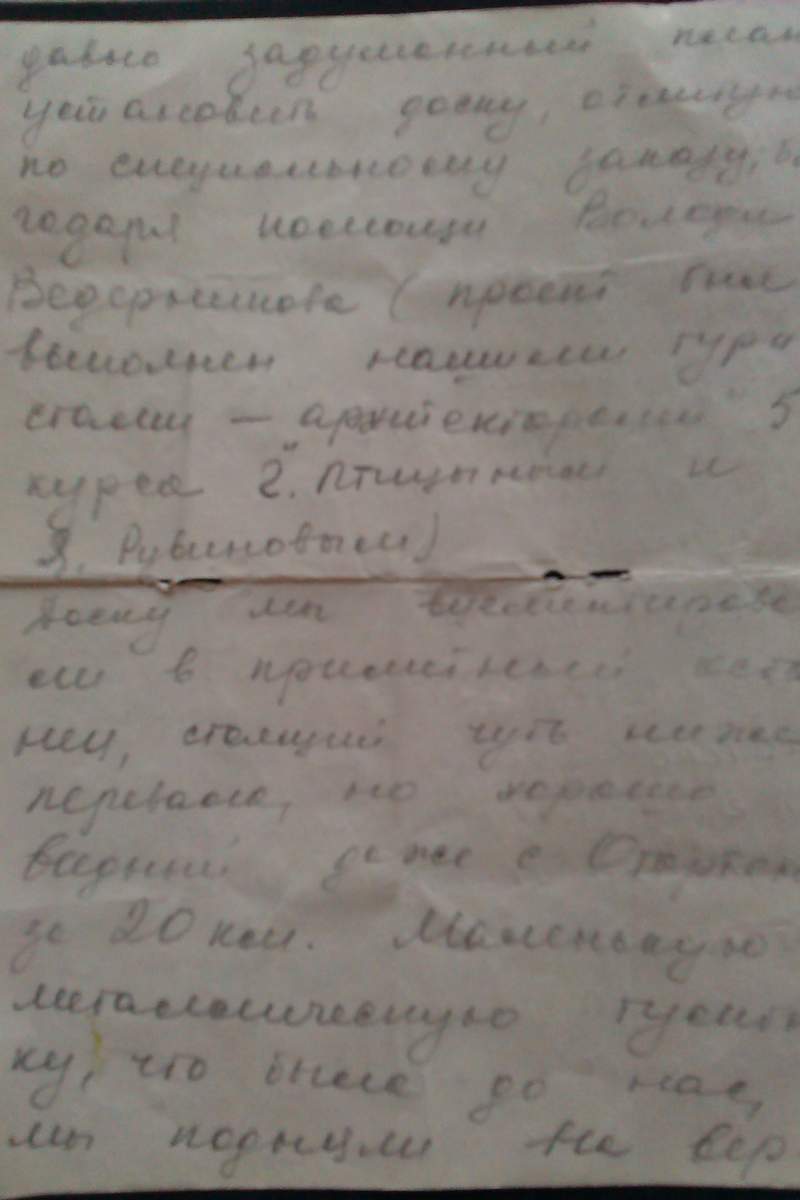 давно задуманный план
установить доску, отлитую
по специальному заказу, бла
годаря помощи Володи
Ведерникова ( проект был
выполнен нашими тури
стами — архитекторами 5
курса Г. Птицыным и
Я. Рувиновым)
Доску мы вцементирова
ли в приметный ка
мен, стоящий чуть ниже
перевала, но хорошо
видный даже с
за 20 км. Маленькую
металлическую
ку, что была до нас,
мы подняли на вер